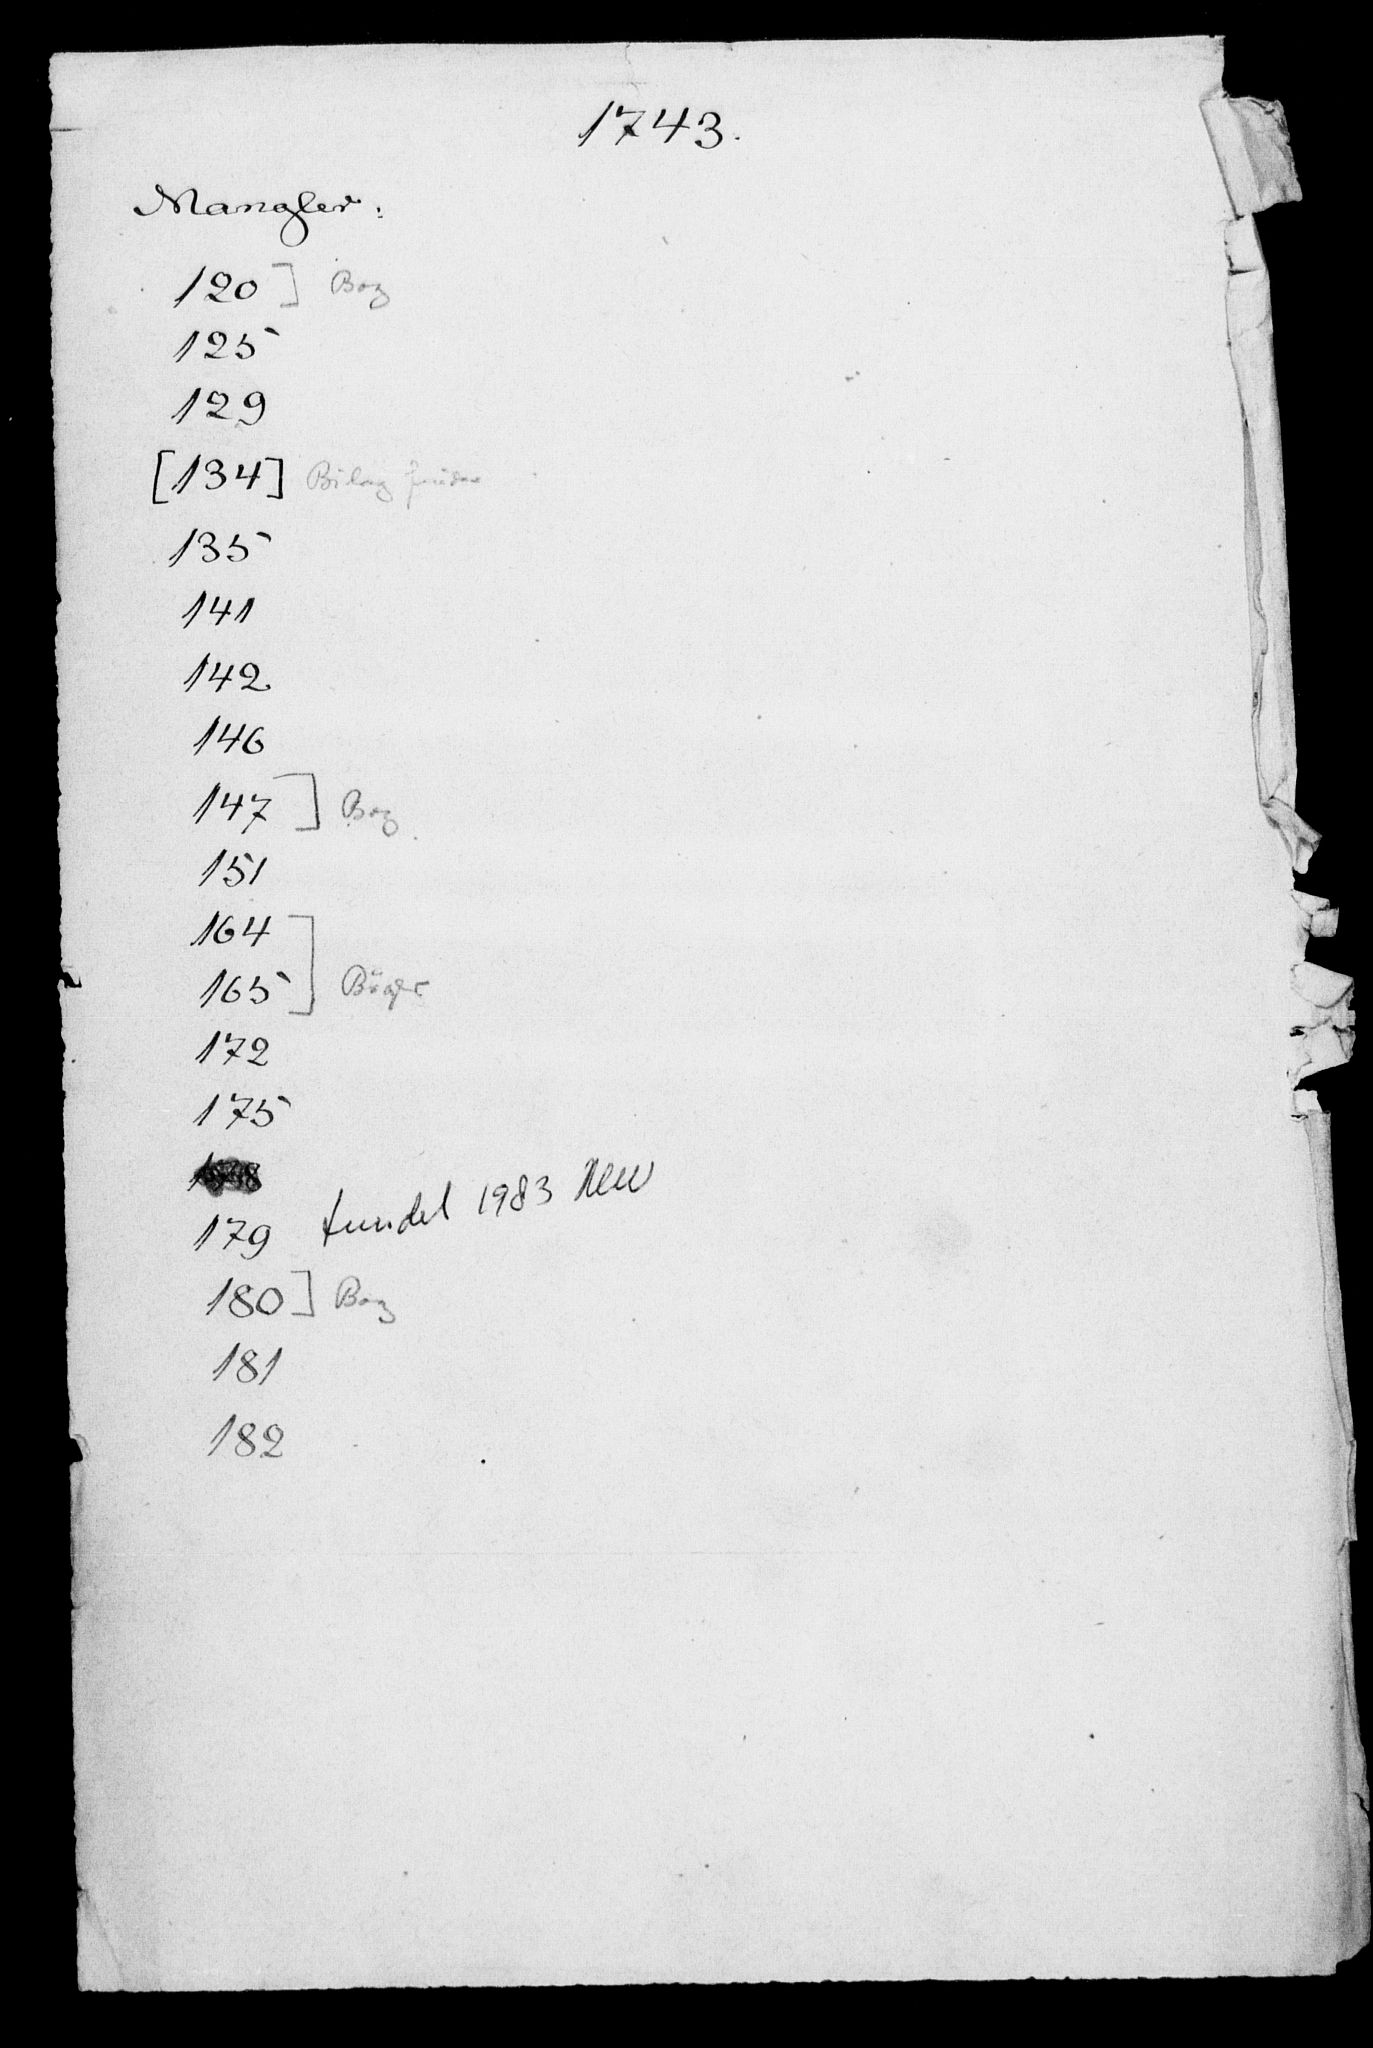 1743.
Mangler:
120] Bog
125
129
[134] Bilag findes
135
141
142
146
147] Bog
151
164
165] Bøger
172
175
179 fundet 1983
180] Bog
181
182